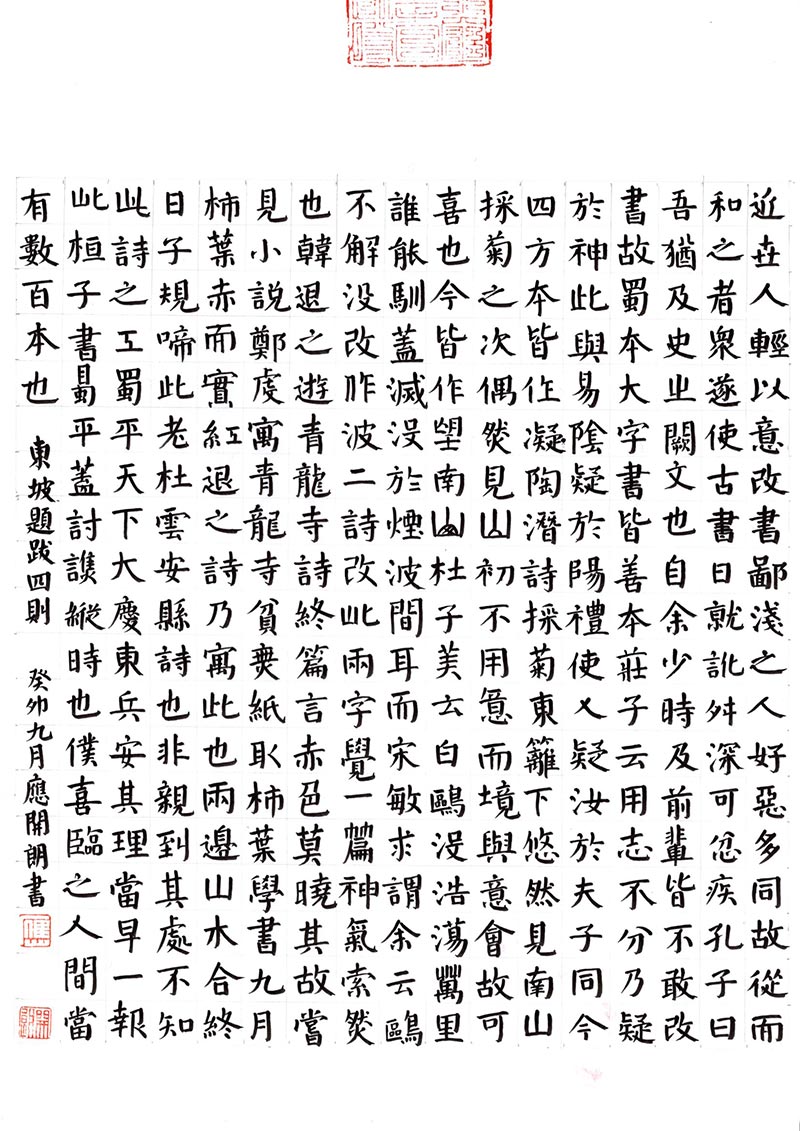 近世人輕以意改書鄙淺之人好惡多同故從而
和之者衆遂使古書日就訛舛深可忿疾孔子曰
吾猶及史之闕文也自余少時及前輩皆不敢改
書故蜀本大字書皆善本莊子云用志不分乃疑
於神此與易陰疑於陽禮使人疑汝於夫子同今
四方本皆作凝陶潛詩採菊東籬下悠然見南山
採菊之次偶然見山初不用意而境與意會故可
喜也今皆作望南山杜子美云白鷗没浩蕩萬里
誰能馴蓋滅没於煙波間耳而宋敏求謂余云鷗
不解没改作波二詩改此兩字覺一篇神氣索然
也韓退之遊青龍寺詩終篇言赤色莫曉其故嘗
見小說鄭虔寓青龍寺貧無紙取柿葉學書九月
柿葉赤而實紅退之詩乃寓此也兩邊山木合終
日子規啼此老杜雲安縣詩也非親到其處不知
此詩之工蜀平天下大慶東兵安其理當早一報
此桓子書蜀平蓋討譙縱時也僕喜臨之人間當
有數百本也 東坡題跋四則 癸卯九月應開朗書